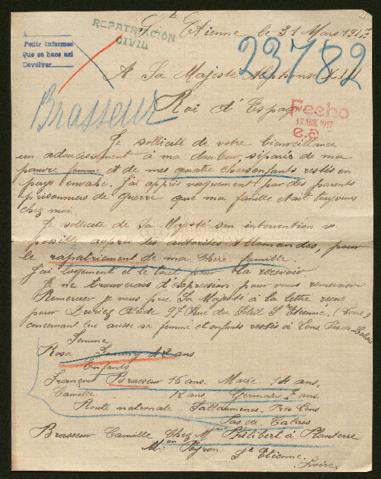 St Etienne le 31 Mars 1917
REPATRIACION
CIVIL
Pedir informes
Que se hace así
Devolver
23782
A Sa Majesté Alphonse XIII
Roi d'Espagne
Brasseur
Fecho
17 ABR. 1917
Je sollicite de votre bienveillance
un adoucissement à ma douleur, séparé de ma
pauvre femme et de mes quatre chers enfants restés en
pays envahi. J'ai appris vaguement par des parents
prisonniers de guerre que ma famille était toujours
chez moi.
Je sollicite de Sa Majesté son intervention si
possible auprès des autorités Allemandes, pour
le rapatriement de ma chère famille
J'ai logement et le tout pour la recevoir
Je ne trouverais d'expression pour vous remercier
Remercier je vous prie Sa Majesté à la lettre reçue
pour 27 Rue du St Etienne (Loire)
concernant lui aussi sa femme et enfants restés à Lens Pas de Calais
Femme
Rosa ans
Enfants
François Brasseur 16 ans, Marie 14 ans,
Camille 12 ans, Germaine 2 ans
Route nationale Sallaumines, Près Lens
Pas de Calais
Brasseur Camille Chez Mr Philibert à Planterre
Mon Peyron, St Etienne,
Loire.